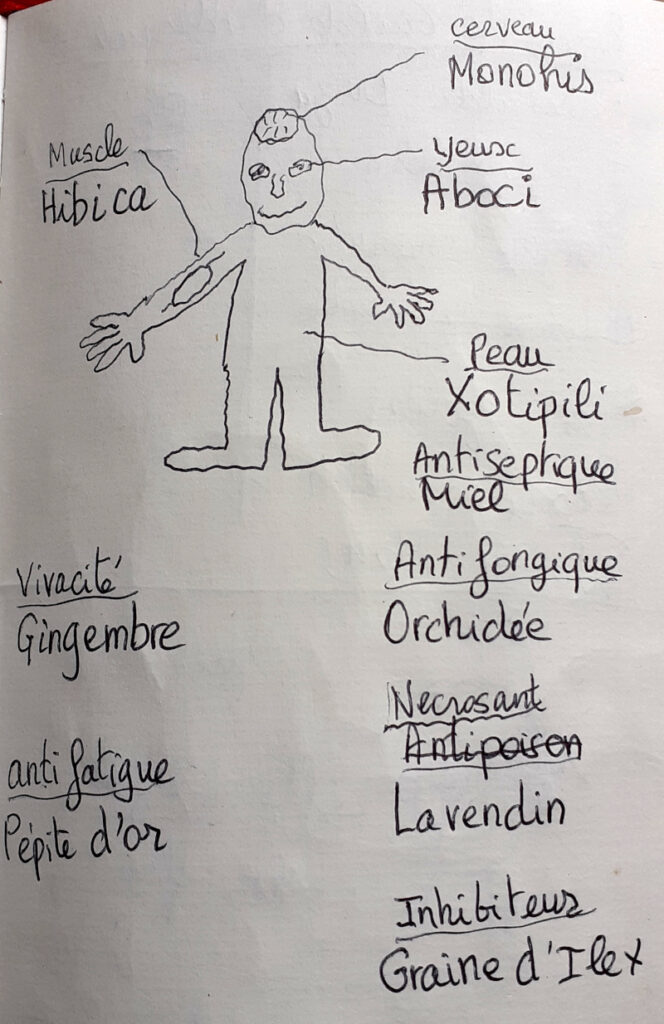 cerveau
Monohis
Muscle
Hibica
yeux
Aboci
Peau
Xotipili
Antiseptique
Miel
Vivacité
Gingembre
Antifongique
Orchidée
Necrosant
Antipoison
Lavendin
anti fatigue
Pépite d'or
Inhibiteur
Graine d'Ilex